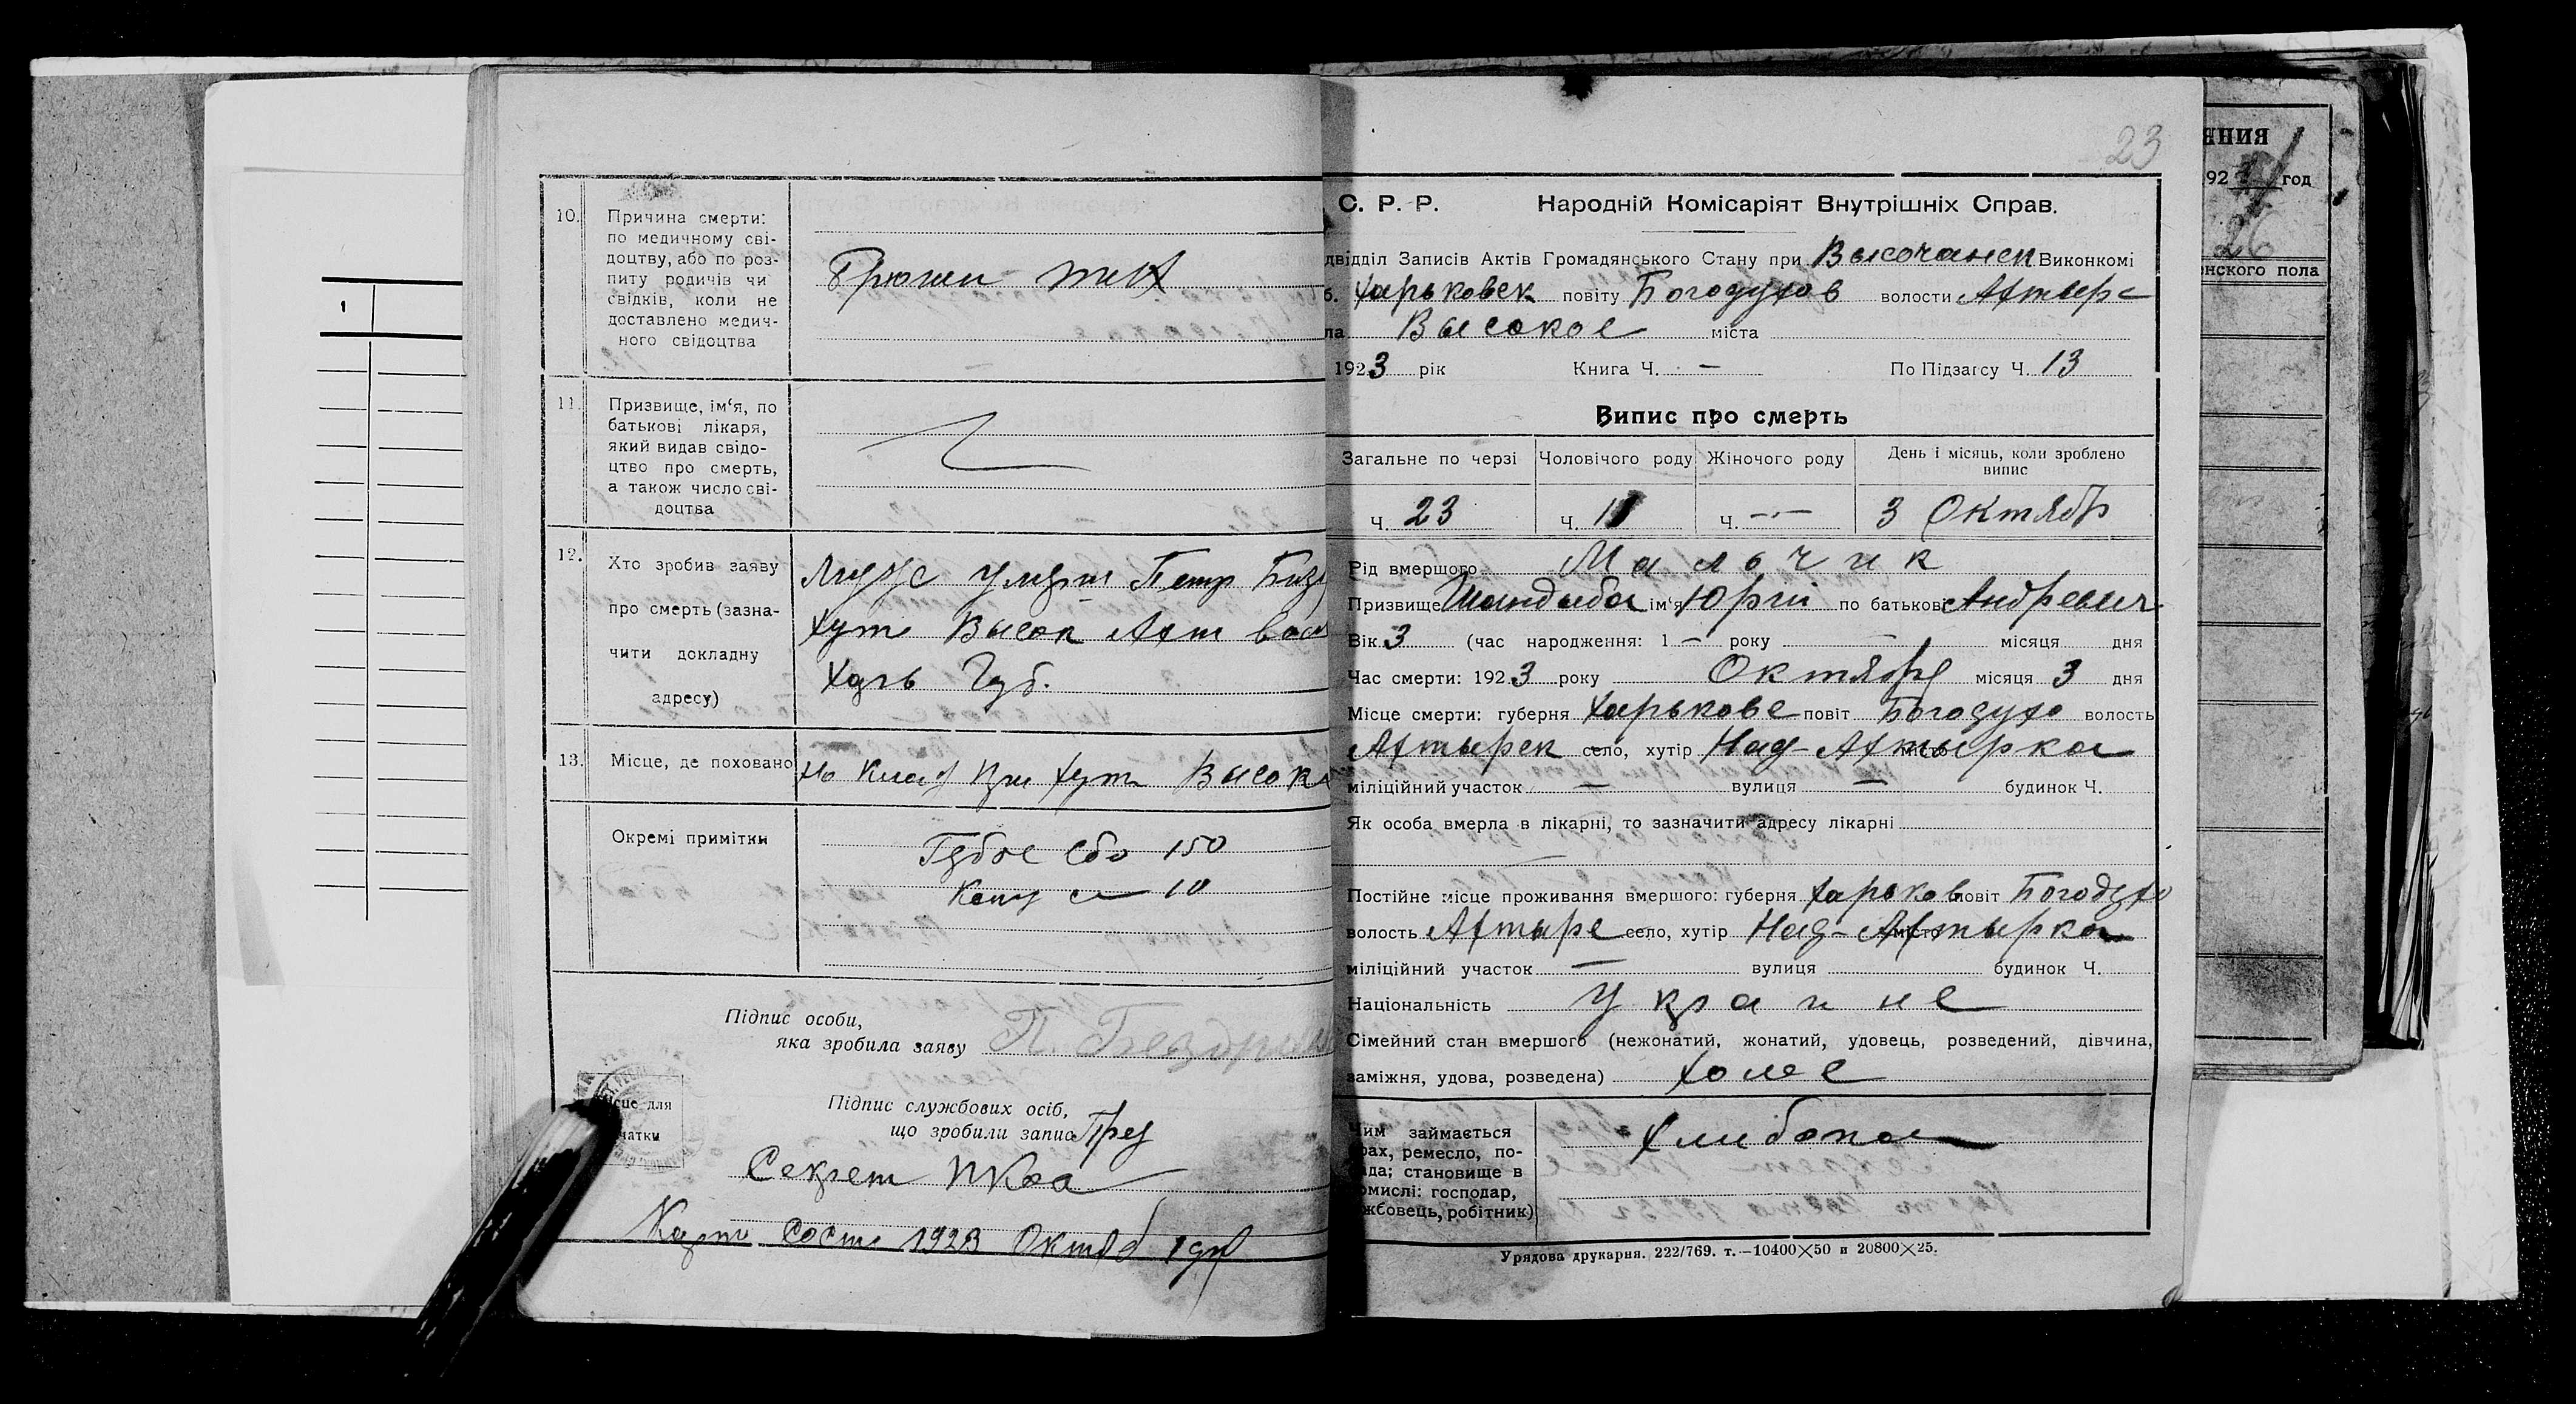 10. Причина смерти:
по медичному сві-
доцтву, або по роз-
питу родичів чи
свідків, коли не
доставлено медич-
ного свідоцтва
Брюшн тиф
11. Призвище, ім'я, по
батькові лікаря,
який видав свідо-
цтво про смерть,
а також число сві-
доцтва
12. Хто зробив заяву
про смерть (зазна-
чити докладну
адресу)
Петр
Хут Высок Ахт вол
Харь Губ.
13. Місце, де поховано
На Клад При Хут Высок
Окремі примітки
150
10
Підпис особи,
яка зробила заяву П. Бездри
Підпис службових осіб,
що зробили запис Пред
Секрет
1923 Октяб
1
23
С. Р. Р. Народній Комісаріят Внутрішніх Справ.
двідділ Записів Актів Громадянського Стану при Высочанск Виконкомі
б. Харьковск повіту Богодухов волости Ахтырс
ла Высокое міста
1923 рік Книга Ч. — По Підзагсу Ч. 13
Випис про смерть
Загальне по черзі Чоловічого роду Жіночого роду День і місяць, коли зроблено
випис
Ч. 23 Ч. 11 Ч. — 3 Октябр
Рід вмершого Мальчик
Призвище Шандыба ім'я Юрій по батькові Андреевич
Вік 3 (час народження: 1 — року — місяця дня
Час смерти: 1923 року Октябре місяця 3 дня
Місце смерти: губерня Харькове повіт Богодухо волость
Ахтырск село, хутір Над-Ахтырка місто
міліційний участок — вулиця — будинок Ч.
Як особа вмерла в лікарні, то зазначити адресу лікарні
Постійне місце проживання вмершого: губерня Харьков повіт Богодухо
волость Ахтырс село, хутір Над-Ахтырка місто
міліційний участок — вулиця будинок Ч.
Національність Украине
Сімейний стан вмершого (нежонатий, жонатий, удовець, розведений, дівчина,
заміжня, удова, розведена) Холос
Чим займається
фах, ремесло, по-
сада; становище в
промислі: господар,
жбовець, робітник)
Хлибопа
Урядова друкарня. 222/769. т.—10400×50 и 20800×25.
ЯНИЯ
192 год
26
нского пола